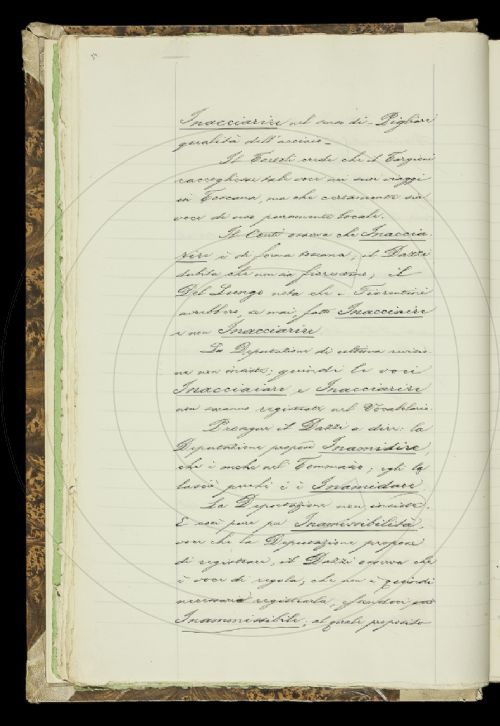 Inacciarire nel senso di - Pigliare
qualità dell'acciaio -
Il Tortoli crede che il Targioni
raccogliesse tale voce nei suoi viaggi
in Toscana, ma che certamente sia
voce di uso puramente locale.
Il Conti osserva che Inaccia
rire è di forma romana; il Dazzi
dubita che non sia fiorentino; il
Del Lungo nota che i Fiorentini
avrebbero, se mai, fatto Inacciaire
e non Inacciarire
La Deputazione di ultima revisio
ne non insiste; quindi le voci
Inacciaiare e Inacciarire
non saranno registrate nel Vocabolario
Prosegue il Dazzi a dire: la
Deputazione propone Inamidire,
che è anche nel Tommaseo; egli la
lascia perchè c'è Inamidare
La Deputazione non insiste.
E così pure per Inamissibilità,
voce che la Deputazione propone
di registrare, il Dazzi osserva che
è voce di regola, che non è quindi
necessario registrarla, essendovi pur
Inammissibile, al quale proposito